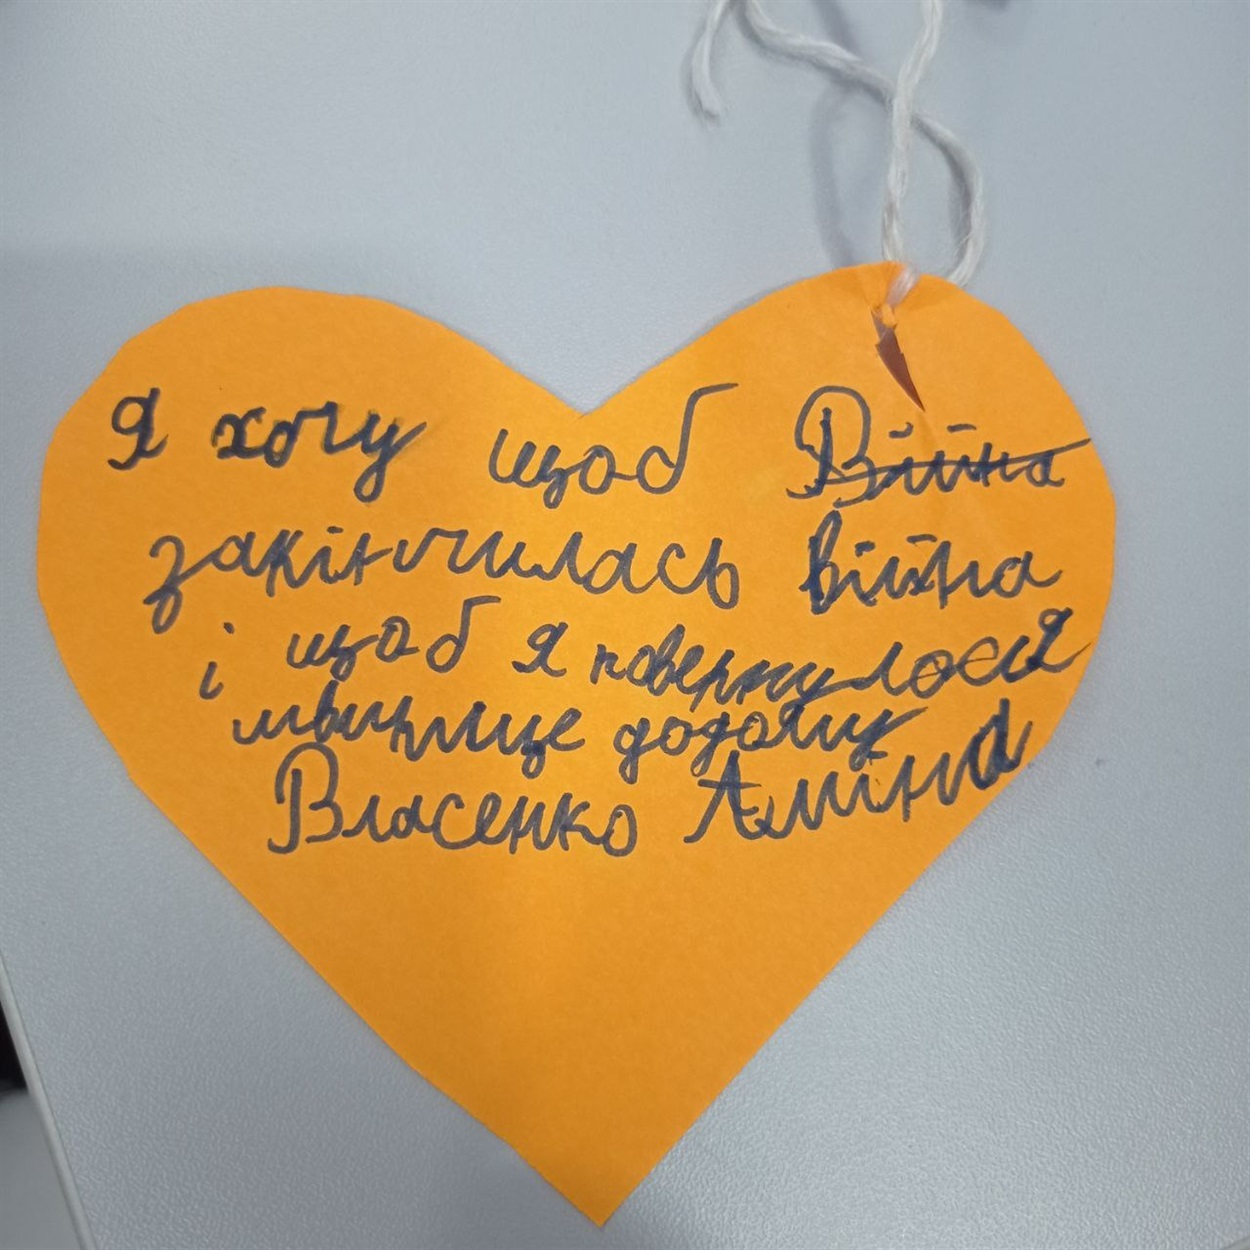 Я хочу щоб Війна
закінчилась війна
і щоб я повернулося
додому
Власенко Аміна